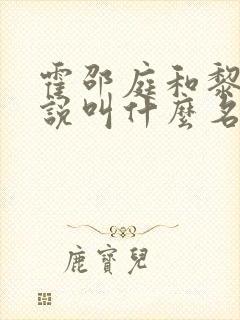 霍邵庭和黎
說叫什麼名
鹿寶兒